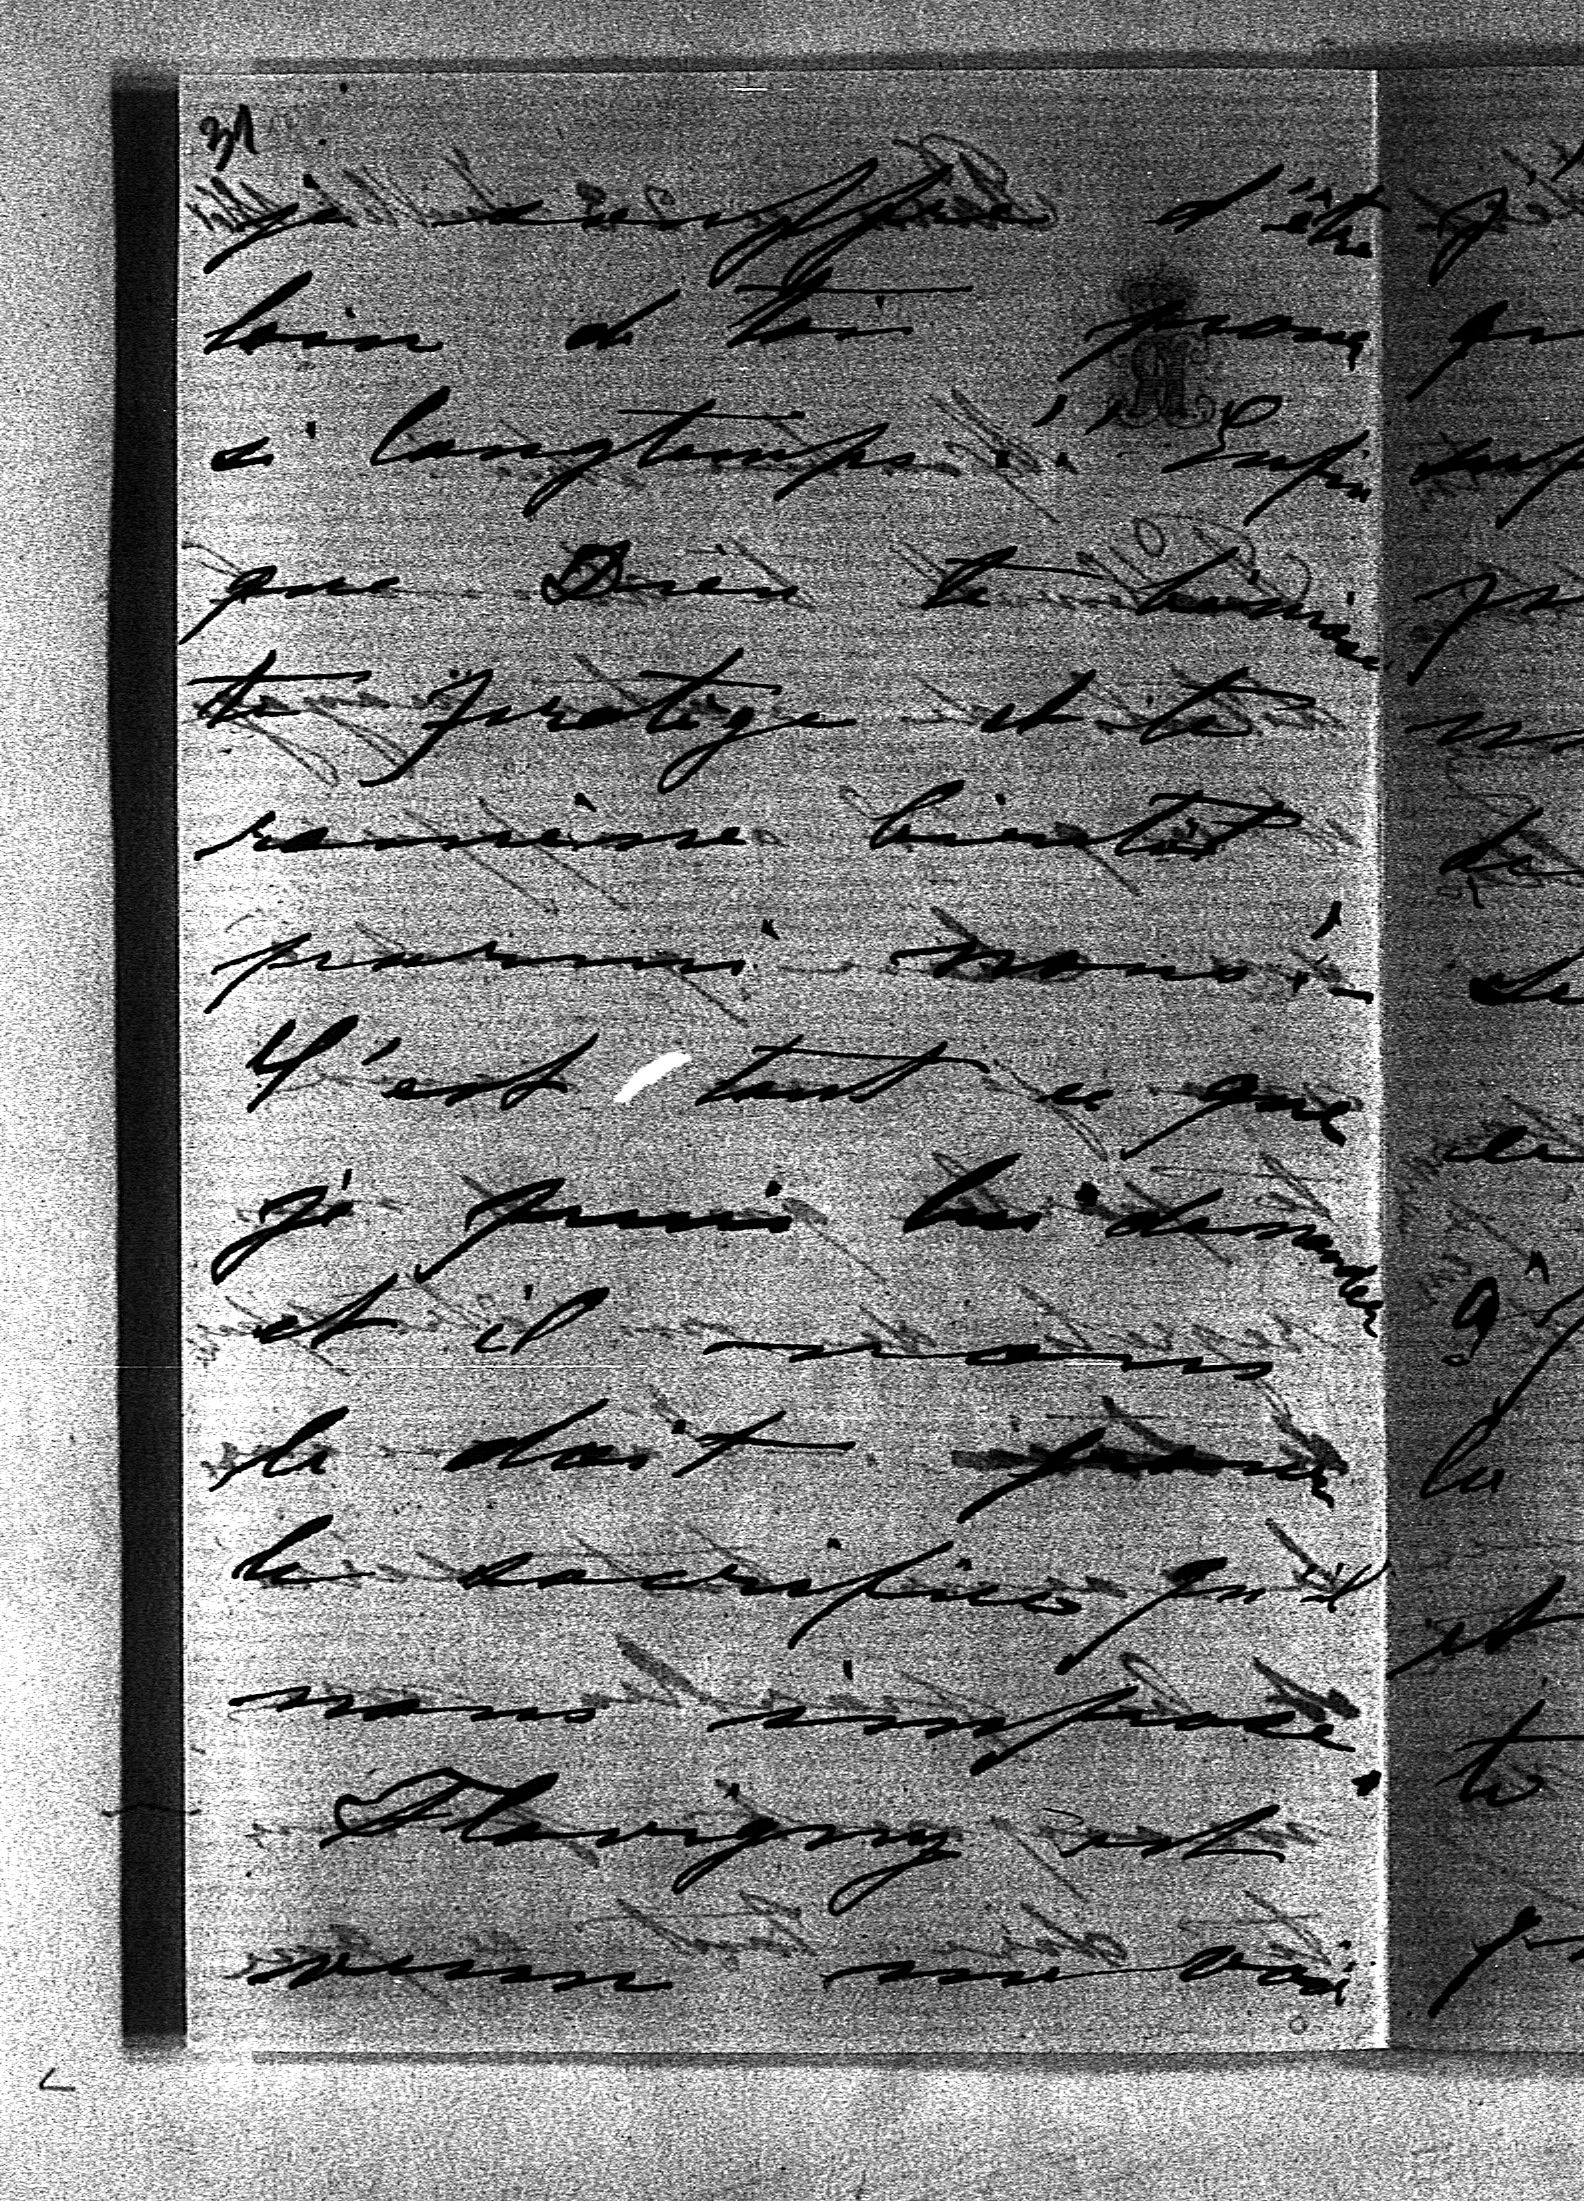 31
je souffre d'être
loin de toi pour
si longtemps !! Enfin
que Dieu te bénisse
te protège et te
ramène bientôt
parmi nous !
C'est tout ce que
je puis lui demander
et il nous
le doit pour
le sacrifice qu'il
nous impose.
Flavigny est
venu me voir